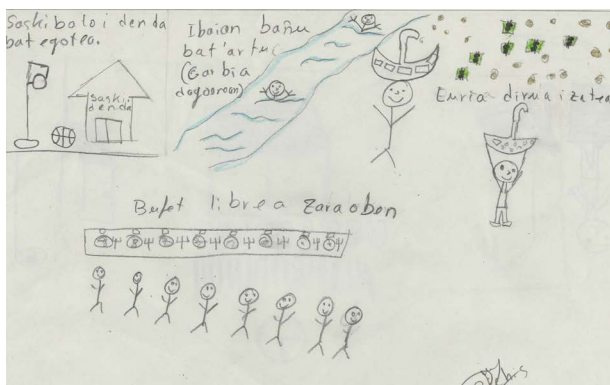 Saskibaloi denda
bat egotea.
saskii
denda
Ibaian bañu
bat artuz
(Garbia
dagoenean)
Euria dirua izatea
Bufet librea Zarautzen